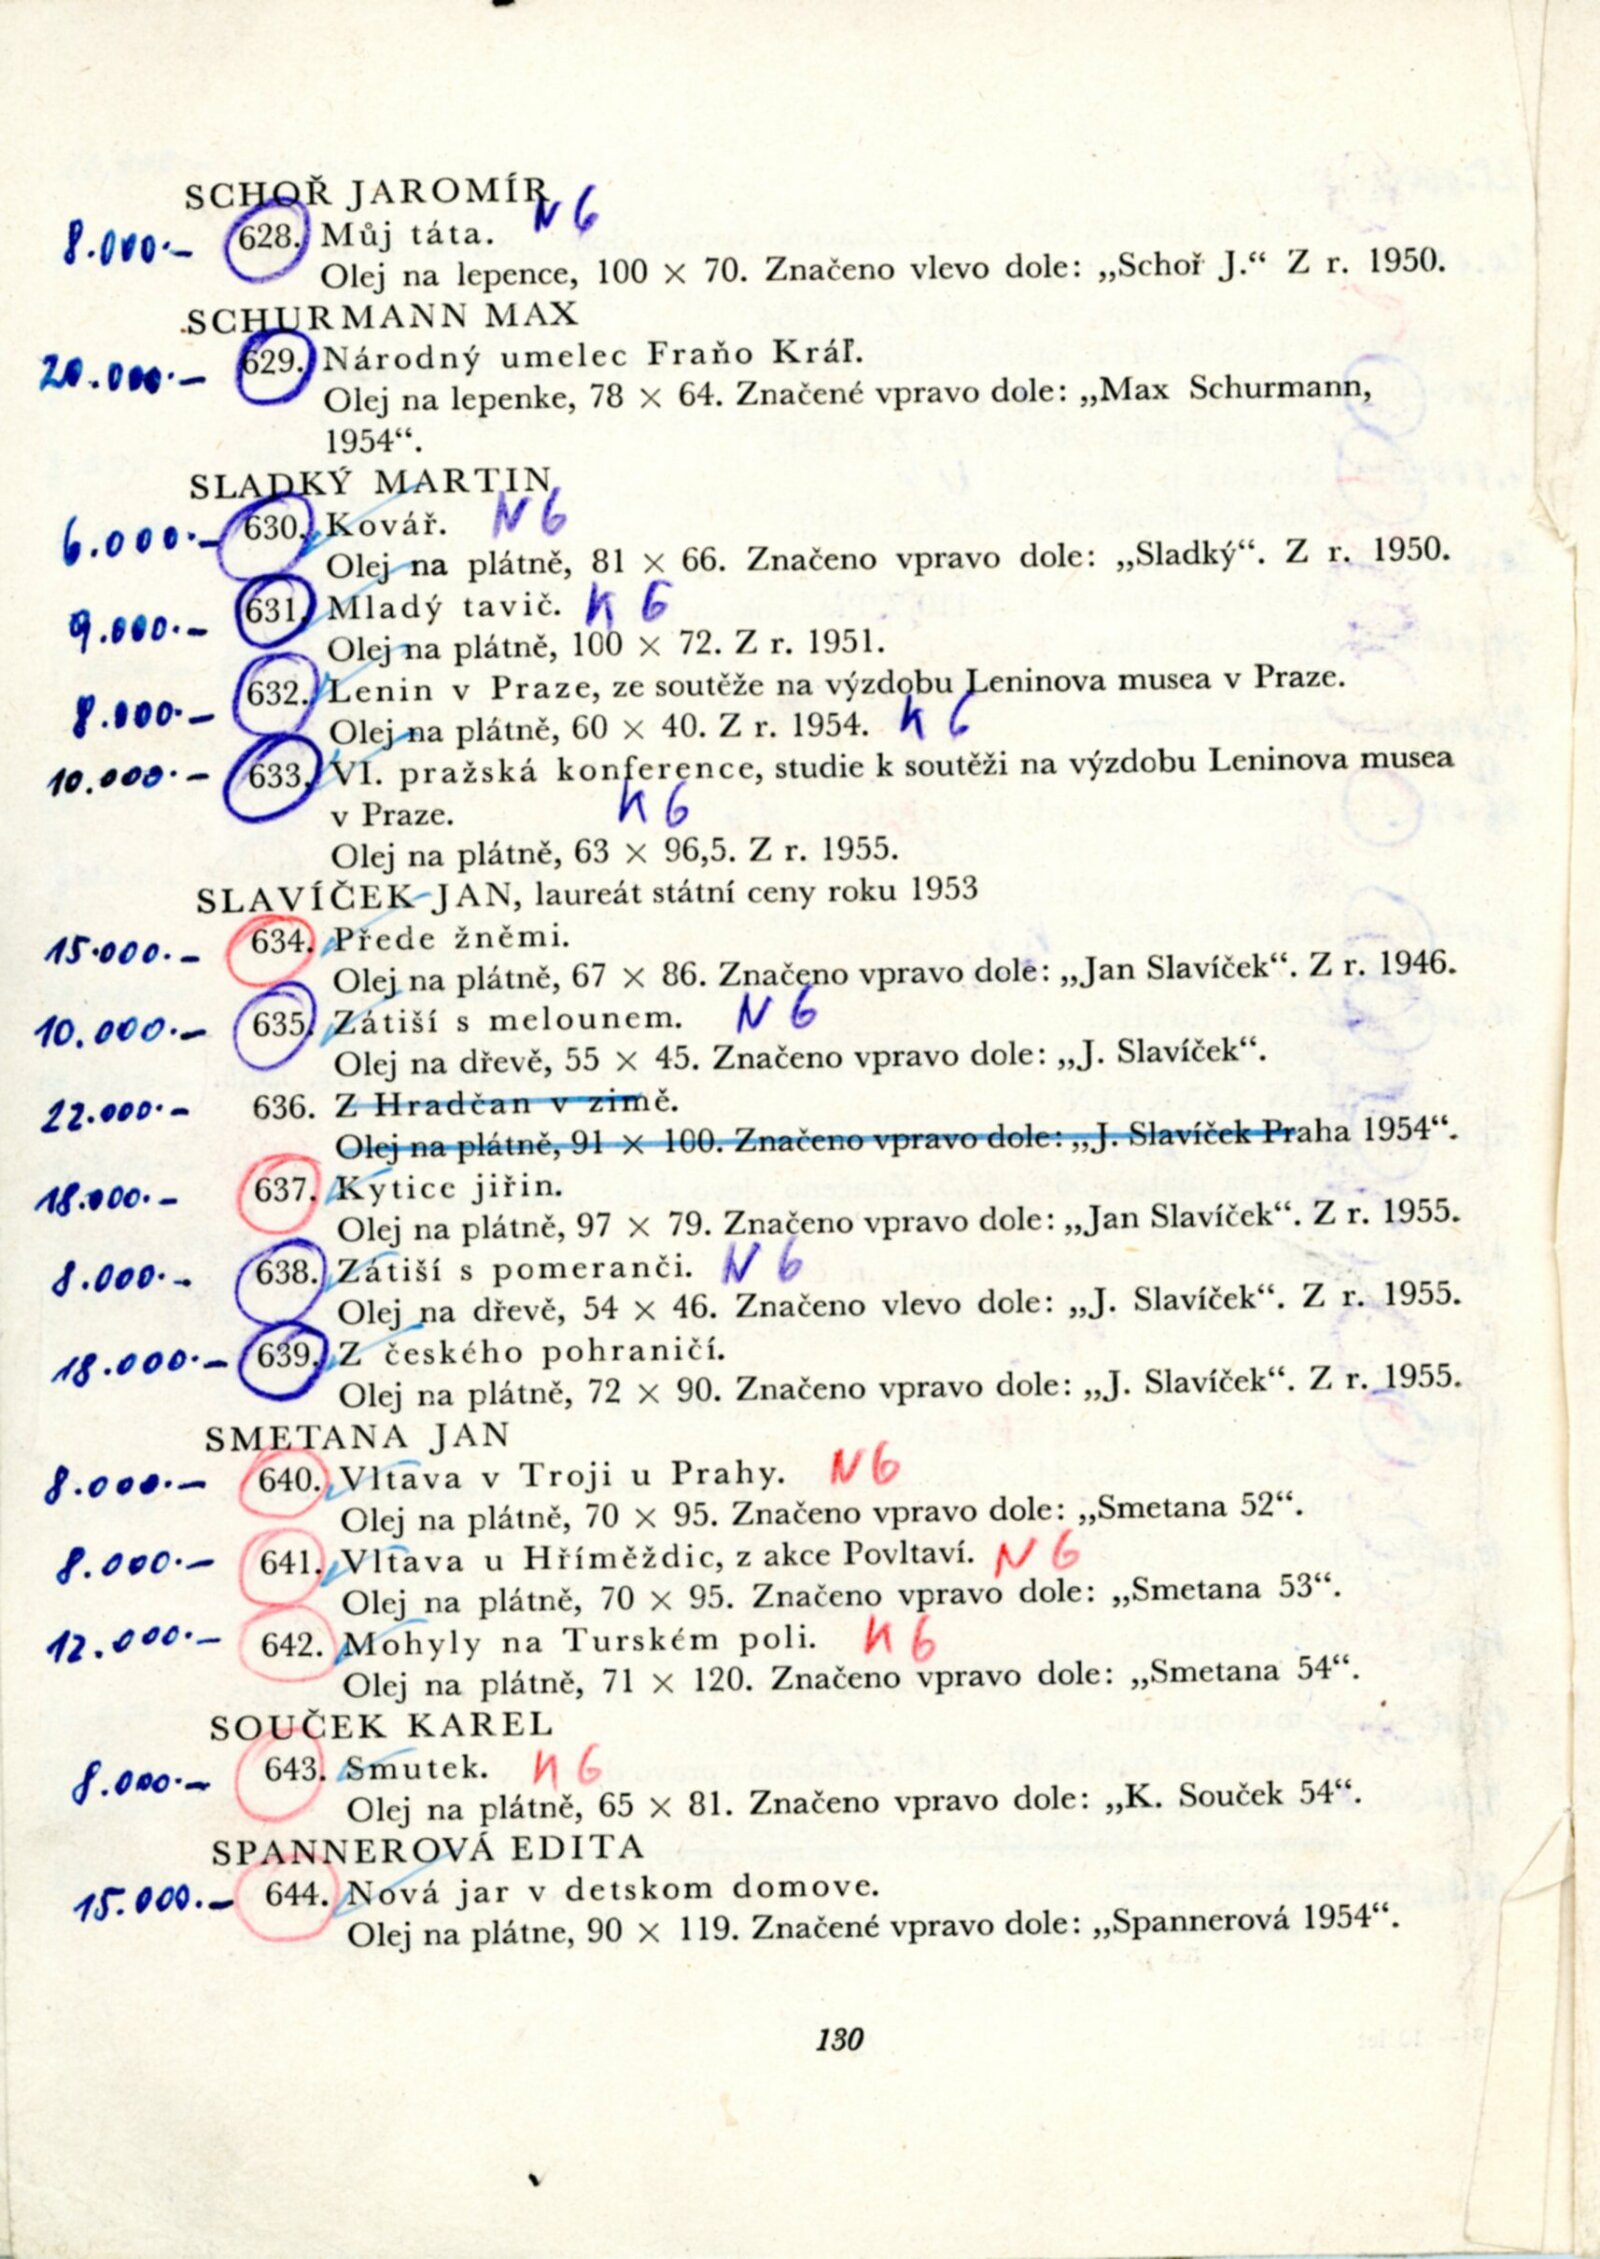 SCHOŘ JAROMÍR
8.000.– 628. Můj táta. N 6
Olej na lepence, 100 × 70. Značeno vlevo dole: „Schoř J.“ Z r. 1950.
SCHURMANN MAX
20.000.– 629. Národný umelec Fraňo Kráľ.
Olej na lepenke, 78 × 64. Značené vpravo dole: „Max Schurmann,
1954“.
SLADKÝ MARTIN
6.000.– 630. Kovář. N 6
Olej na plátně, 81 × 66. Značeno vpravo dole: „Sladký“. Z r. 1950.
9.000.– 631. Mladý tavič. K 6
Olej na plátně, 100 × 72. Z r. 1951.
8.000.– 632. Lenin v Praze, ze soutěže na výzdobu Leninova musea v Praze.
Olej na plátně, 60 × 40. Z r. 1954. K 6
10.000.– 633. VI. pražská konference, studie k soutěži na výzdobu Leninova musea
v Praze. K 6
Olej na plátně, 63 × 96,5. Z r. 1955.
SLAVÍČEK JAN, laureát státní ceny roku 1953
15.000.– 634. Přede žněmi.
Olej na plátně, 67 × 86. Značeno vpravo dole: „Jan Slavíček“. Z r. 1946.
10.000.– 635. Zátiší s melounem. N 6
Olej na dřevě, 55 × 45. Značeno vpravo dole: „J. Slavíček“.
22.000.– 636. Z Hradčan v zimě.
Olej na plátně, 91 × 100. Značeno vpravo dole: „J. Slavíček Praha 1954“.
18.000.– 637. Kytice jiřin.
Olej na plátně, 97 × 79. Značeno vpravo dole: „Jan Slavíček“. Z r. 1955.
8.000.– 638. Zátiší s pomeranči. N 6
Olej na dřevě, 54 × 46. Značeno vlevo dole: „J. Slavíček“. Z r. 1955.
18.000.– 639. Z českého pohraničí.
Olej na plátně, 72 × 90. Značeno vpravo dole: „J. Slavíček“. Z r. 1955.
SMETANA JAN
8.000.– 640. Vltava v Troji u Prahy. N 6
Olej na plátně, 70 × 95. Značeno vpravo dole: „Smetana 52“.
8.000.– 641. Vltava u Hříměždic, z akce Povltaví. N 6
Olej na plátně, 70 × 95. Značeno vpravo dole: „Smetana 53“.
12.000.– 642. Mohyly na Turském poli. K 6
Olej na plátně, 71 × 120. Značeno vpravo dole: „Smetana 54“.
SOUČEK KAREL
8.000.– 643. Smutek. K 6
Olej na plátně, 65 × 81. Značeno vpravo dole: „K. Souček 54“.
SPANNEROVÁ EDITA
15.000.– 644. Nová jar v detskom domove.
Olej na plátne, 90 × 119. Značené vpravo dole: „Spannerová 1954“.
130